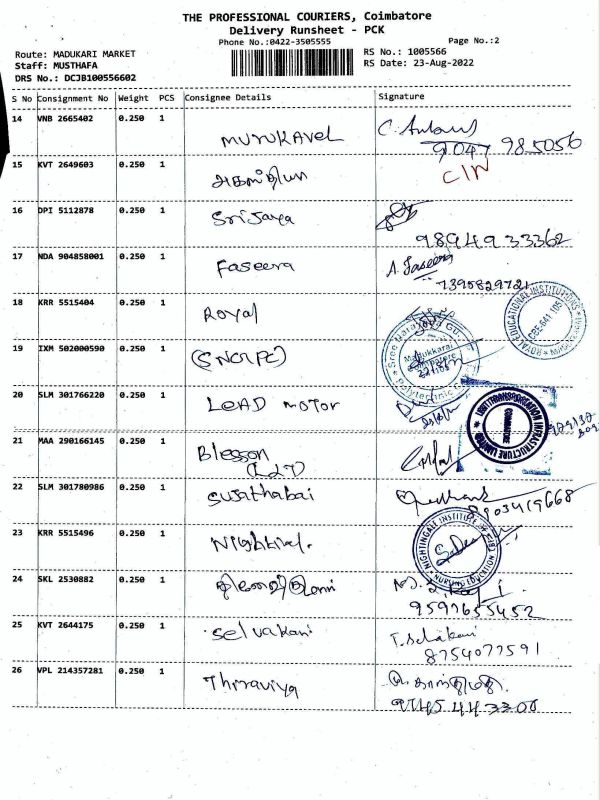 THE PROFESSIONAL COURIERS, Coimbatore
Delivery Runsheet - PCK
Phone No.:0422-3505555
Page No.:2
Route: MADUKARI MARKET
RS No.: 1005566
Staff: MUSTHAFA
RS Date: 23-Aug-2022
DRS No.: DCJB100556602
S No Consignment No Weight PCS Consignee Details Signature
14 VNB 2665402 0.250 1 MURUKAVEL
9047 985056
15 KVT 2649603 0.250 1
16 DPI 5112878 0.250 1 Srijaya
9894933362
17 NDA 904858001 0.250 1 Faseera A. Faseera
7395829721
18 KRR 5515404 0.250 1 Royal
ROYAL EDUCATIONAL INSTITUTIONS
CBE-641 105
19 IXM 502000590 0.250 1 (SNGPC)
Sree Narayana Guru
Madukkarai
Coimbatore
Polytechnic
20 SLM 301766220 0.250 1 LEAD motor
21 MAA 290166145 0.250 1 Blesson
(L&T)
L&T TRANSPORTATION INFRASTRUCTURE LIMITED
COIMBATORE
22 SLM 301780986 0.250 1 Sujathabai
23 KRR 5515496 0.250 1
NIGHTINGALE INSTITUTE OF
24 SKL 2530882 0.250 1
9597655452
25 KVT 2644175 0.250 1 Selvakani T. Selvakani
8754077591
26 VPL 214357281 0.250 1 Thiraviya